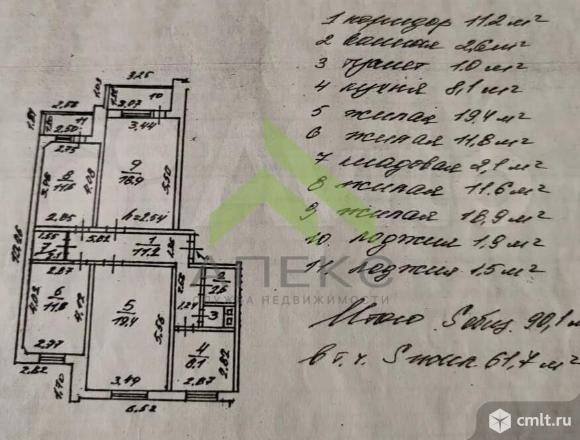 1 коридор 11.2 м²
2 ванная 2,6 м²
3 туалет 1.0 м²
4 кухня 8,1 м²
5 жилая 19.4 м²
6 жилая 11,8 м²
7 кладовая 2,1 м²
8 жилая 11.6 м²
9 жилая 18,9 м²
10 лоджия 1.9 м²
11 лоджия 1.5 м²
Итого Sобщ. 90,1 м
в т. ч. Sжил 61,7 м²
3.25
3,07
10
3,44
2,50
11
2,75
9
18,9
5,50
8
11,6
4,08
2,85
h=2.54
5,02
1
11,2
7
2,1
2,87
6
11,8
4,02
5
19,4
5,56
2
2,6
3
1,24
4
8,1
2,82
2,97
2,82
1,40
3,49
2,87
6,52
АПЕКС
СЛУЖБА НЕДВИЖИМОСТИ
cmlt.ru